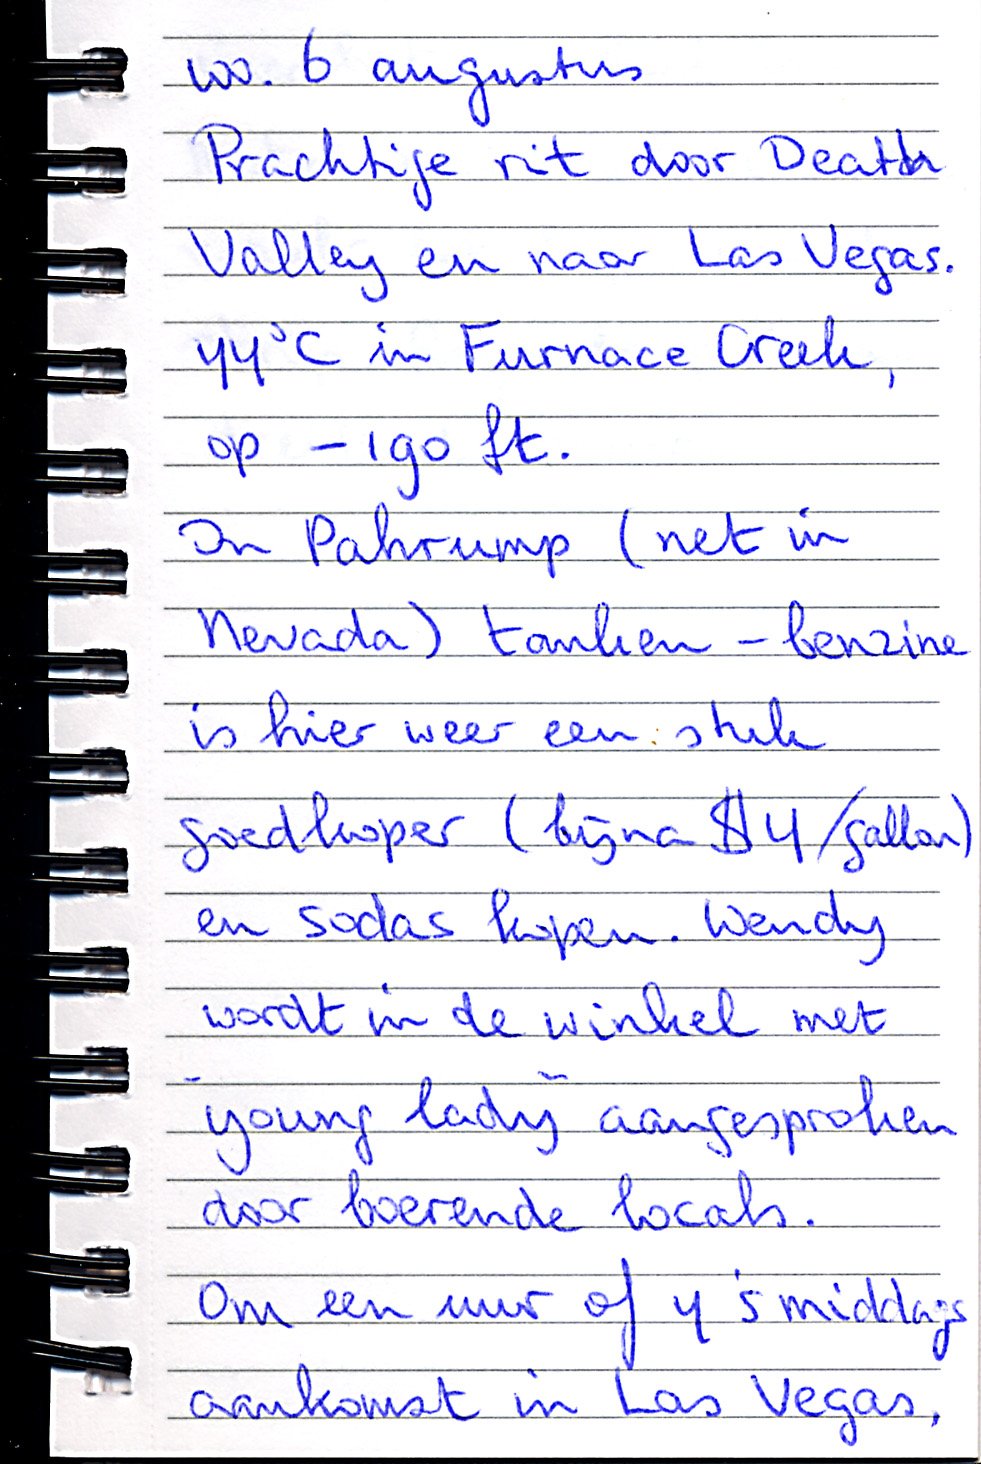 wo. 6 augustus
Prachtige rit door Death
Valley en naar Las Vegas.
44°C in Furnace Creek,
op -190 ft.
In Pahrump (net in
Nevada) tanken - benzine
is hier weer een stuk
goedkoper (bijna $4/gallon)
en sodas kopen. Wendy
wordt in de winkel met
"young lady" aangesproken
door boerende locals.
Om een uur of 4 's middags
aankomst in Las Vegas,